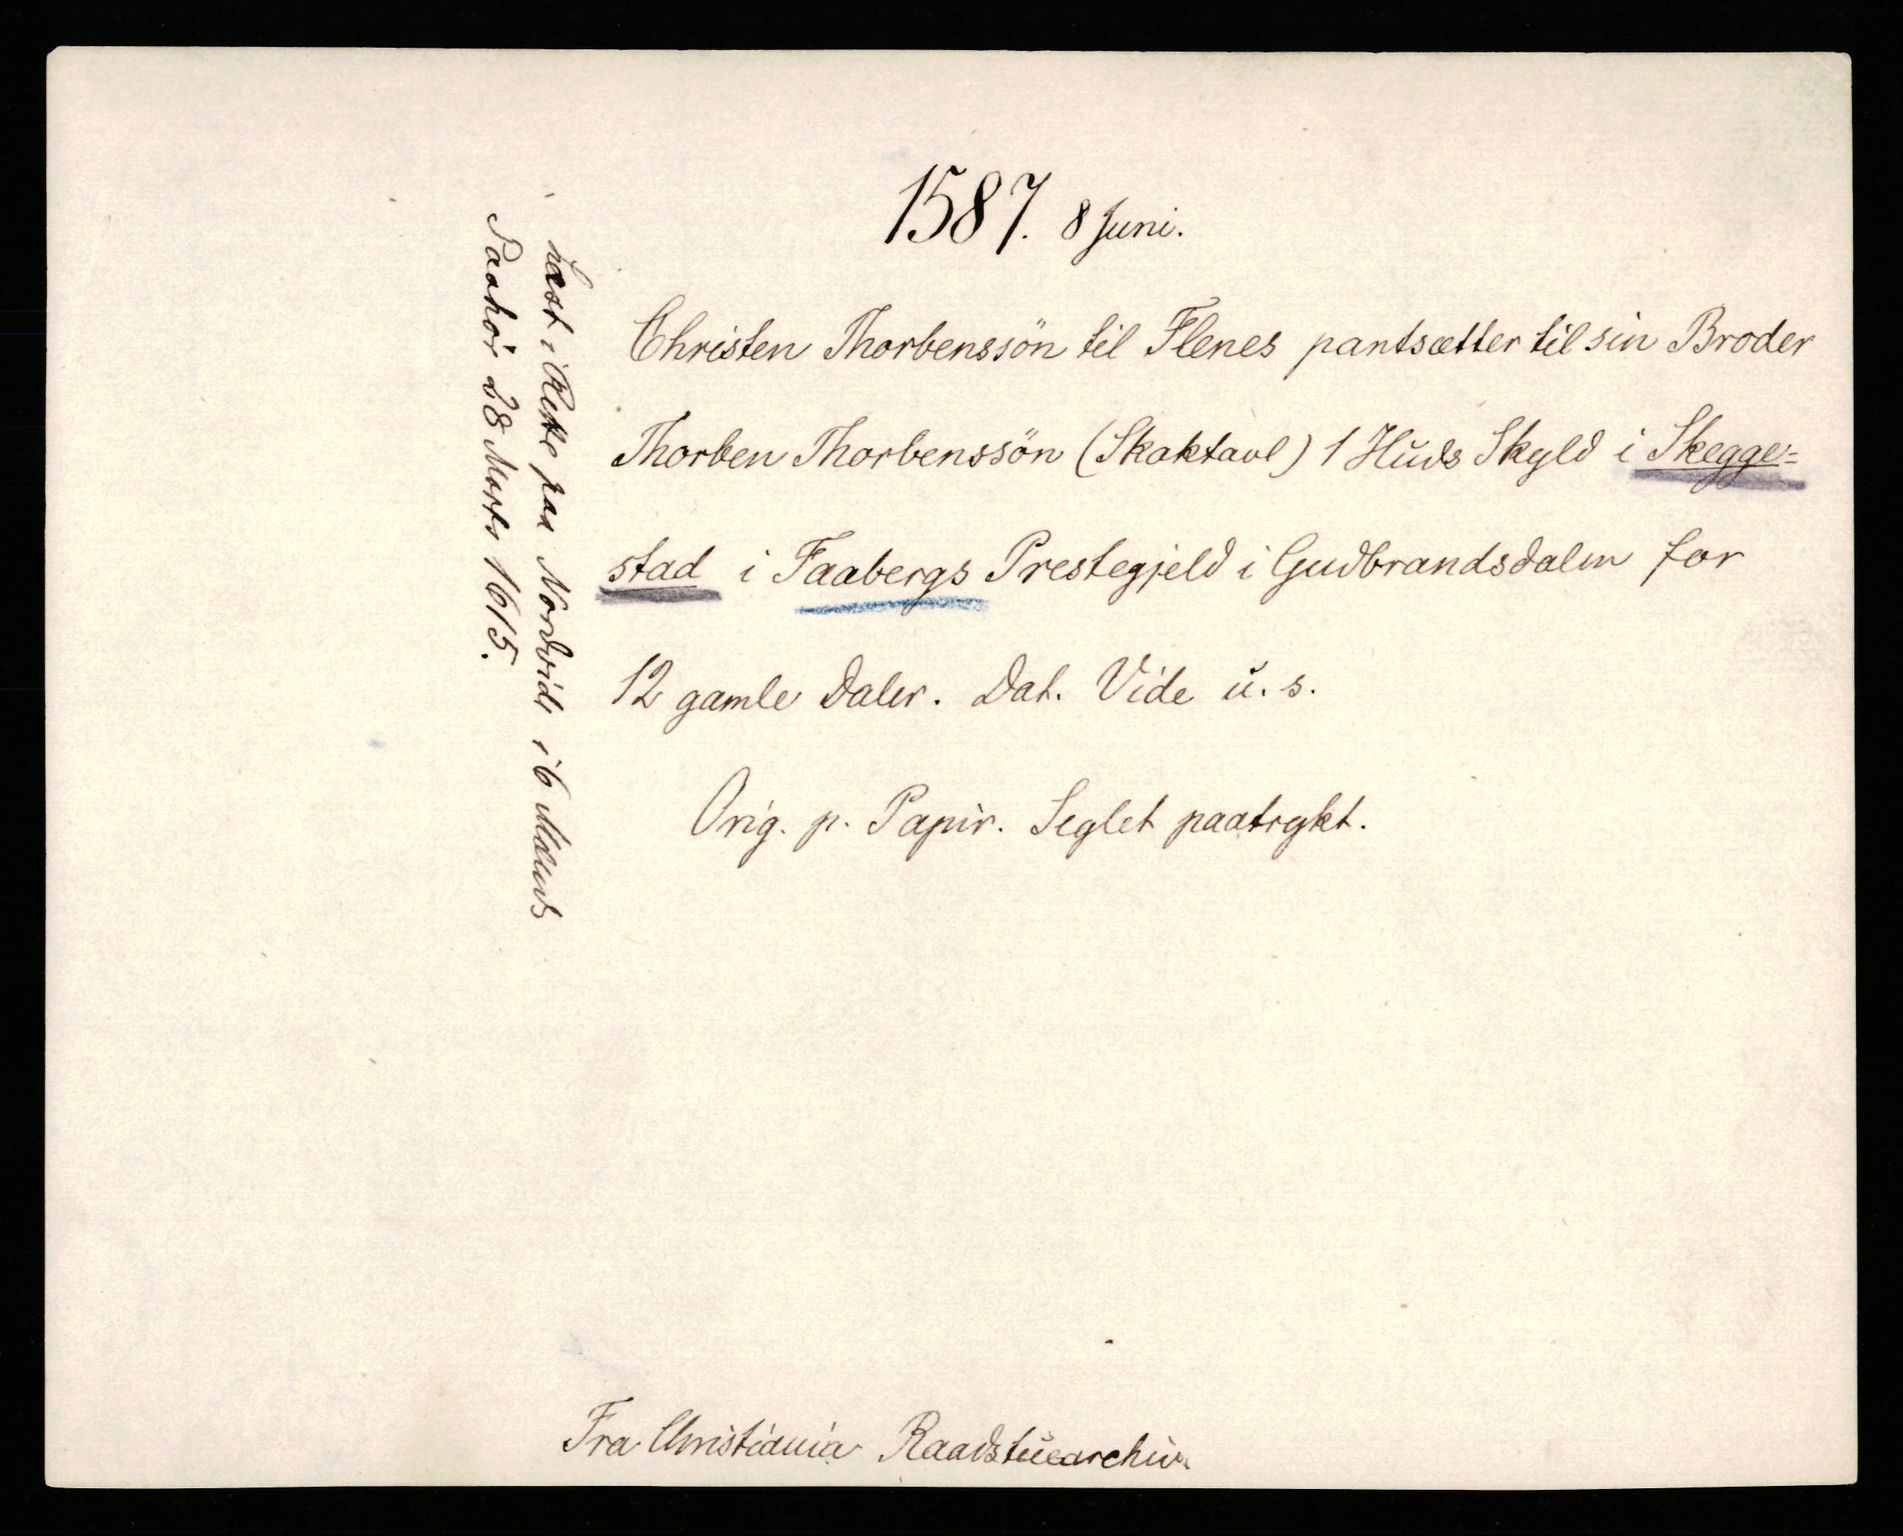 1587. 8 Juni.
Christen Thorbenssön til Flenes pantsætter til sin Broder
Thorben Thorbenssön (Skaktavl) 1 Huds Skyld i Skegge=
stad i Faabergs Prestegjeld i Gudbrandsdalen for
12 gamle Daler. Dat. Vide u. s.
Orig. p. Papir. Seglet paatrykt.
Læst i Rette paa Nordvidt i 6 Mænds
Paahør 28 Marts 1615.
Fra Christiania Raadstuearchiv